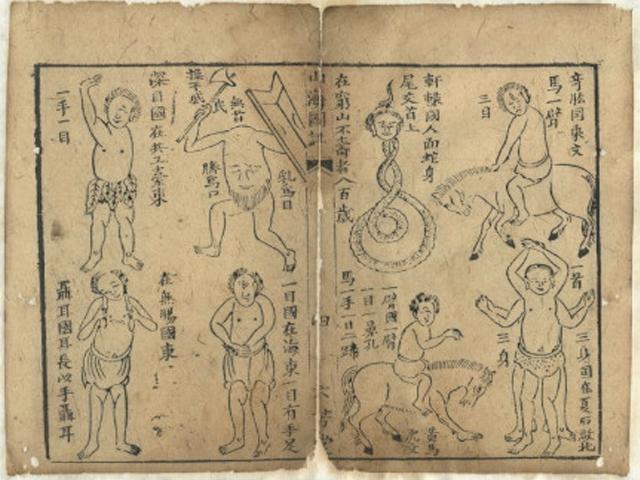 奇肱國乘文
馬一臂
三目
軒轅國人面蛇身
尾交首上
在窮山不壽者八百歲
一首
三身
三身國在夏后啟北
一臂國一臂
一目一鼻孔
馬一手一目二蹄
黃馬
虎文
山海圖
四
乳為目
無首
臍為口
深目國在共工臺東
一手一目
一目國在海東一目有手足
在無腸國東
聶耳國耳長以手聶耳